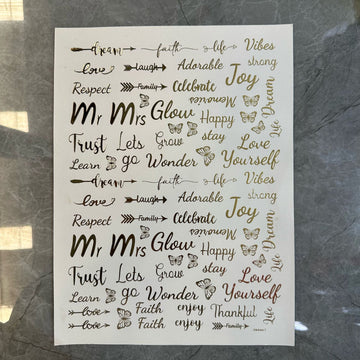 dream faith life Vibes
love laugh Adorable strong
Respect Family Celebrate Joy
Mr Mrs Glow Memories Dream
Trust Lets Grow stay Love Life
Learn go Wonder Yourself
dream faith life Vibes
love laugh Adorable strong
Respect Family Celebrate Joy
Mr Mrs Glow Happy Memories Dream
Trust Lets Grow stay Love Life
Learn go Wonder Yourself
love Faith enjoy Thankful
love Faith enjoy Family